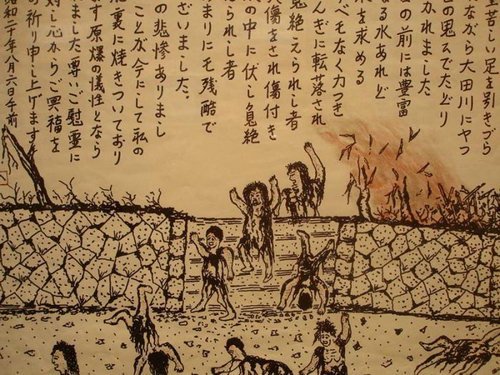 い足を引きづら
ながら大田川にやつ
の思ゐでたどり
かれました
の前には豊富
なる水あれど
水を求める
べモなく力つき
んぎに転落され
息絶えられし者
傷をされ傷付き
の中に伏し息絶
えられし者
まりにモ残酷で
ざいました.
の悲惨ありまし
ことが今にして私の
裏に焼きついており
ます原爆の儀性となら
ました尊いご慰霊に
対し心からご冥福を
祈り申し上げます
昭和二十年八月六日午前